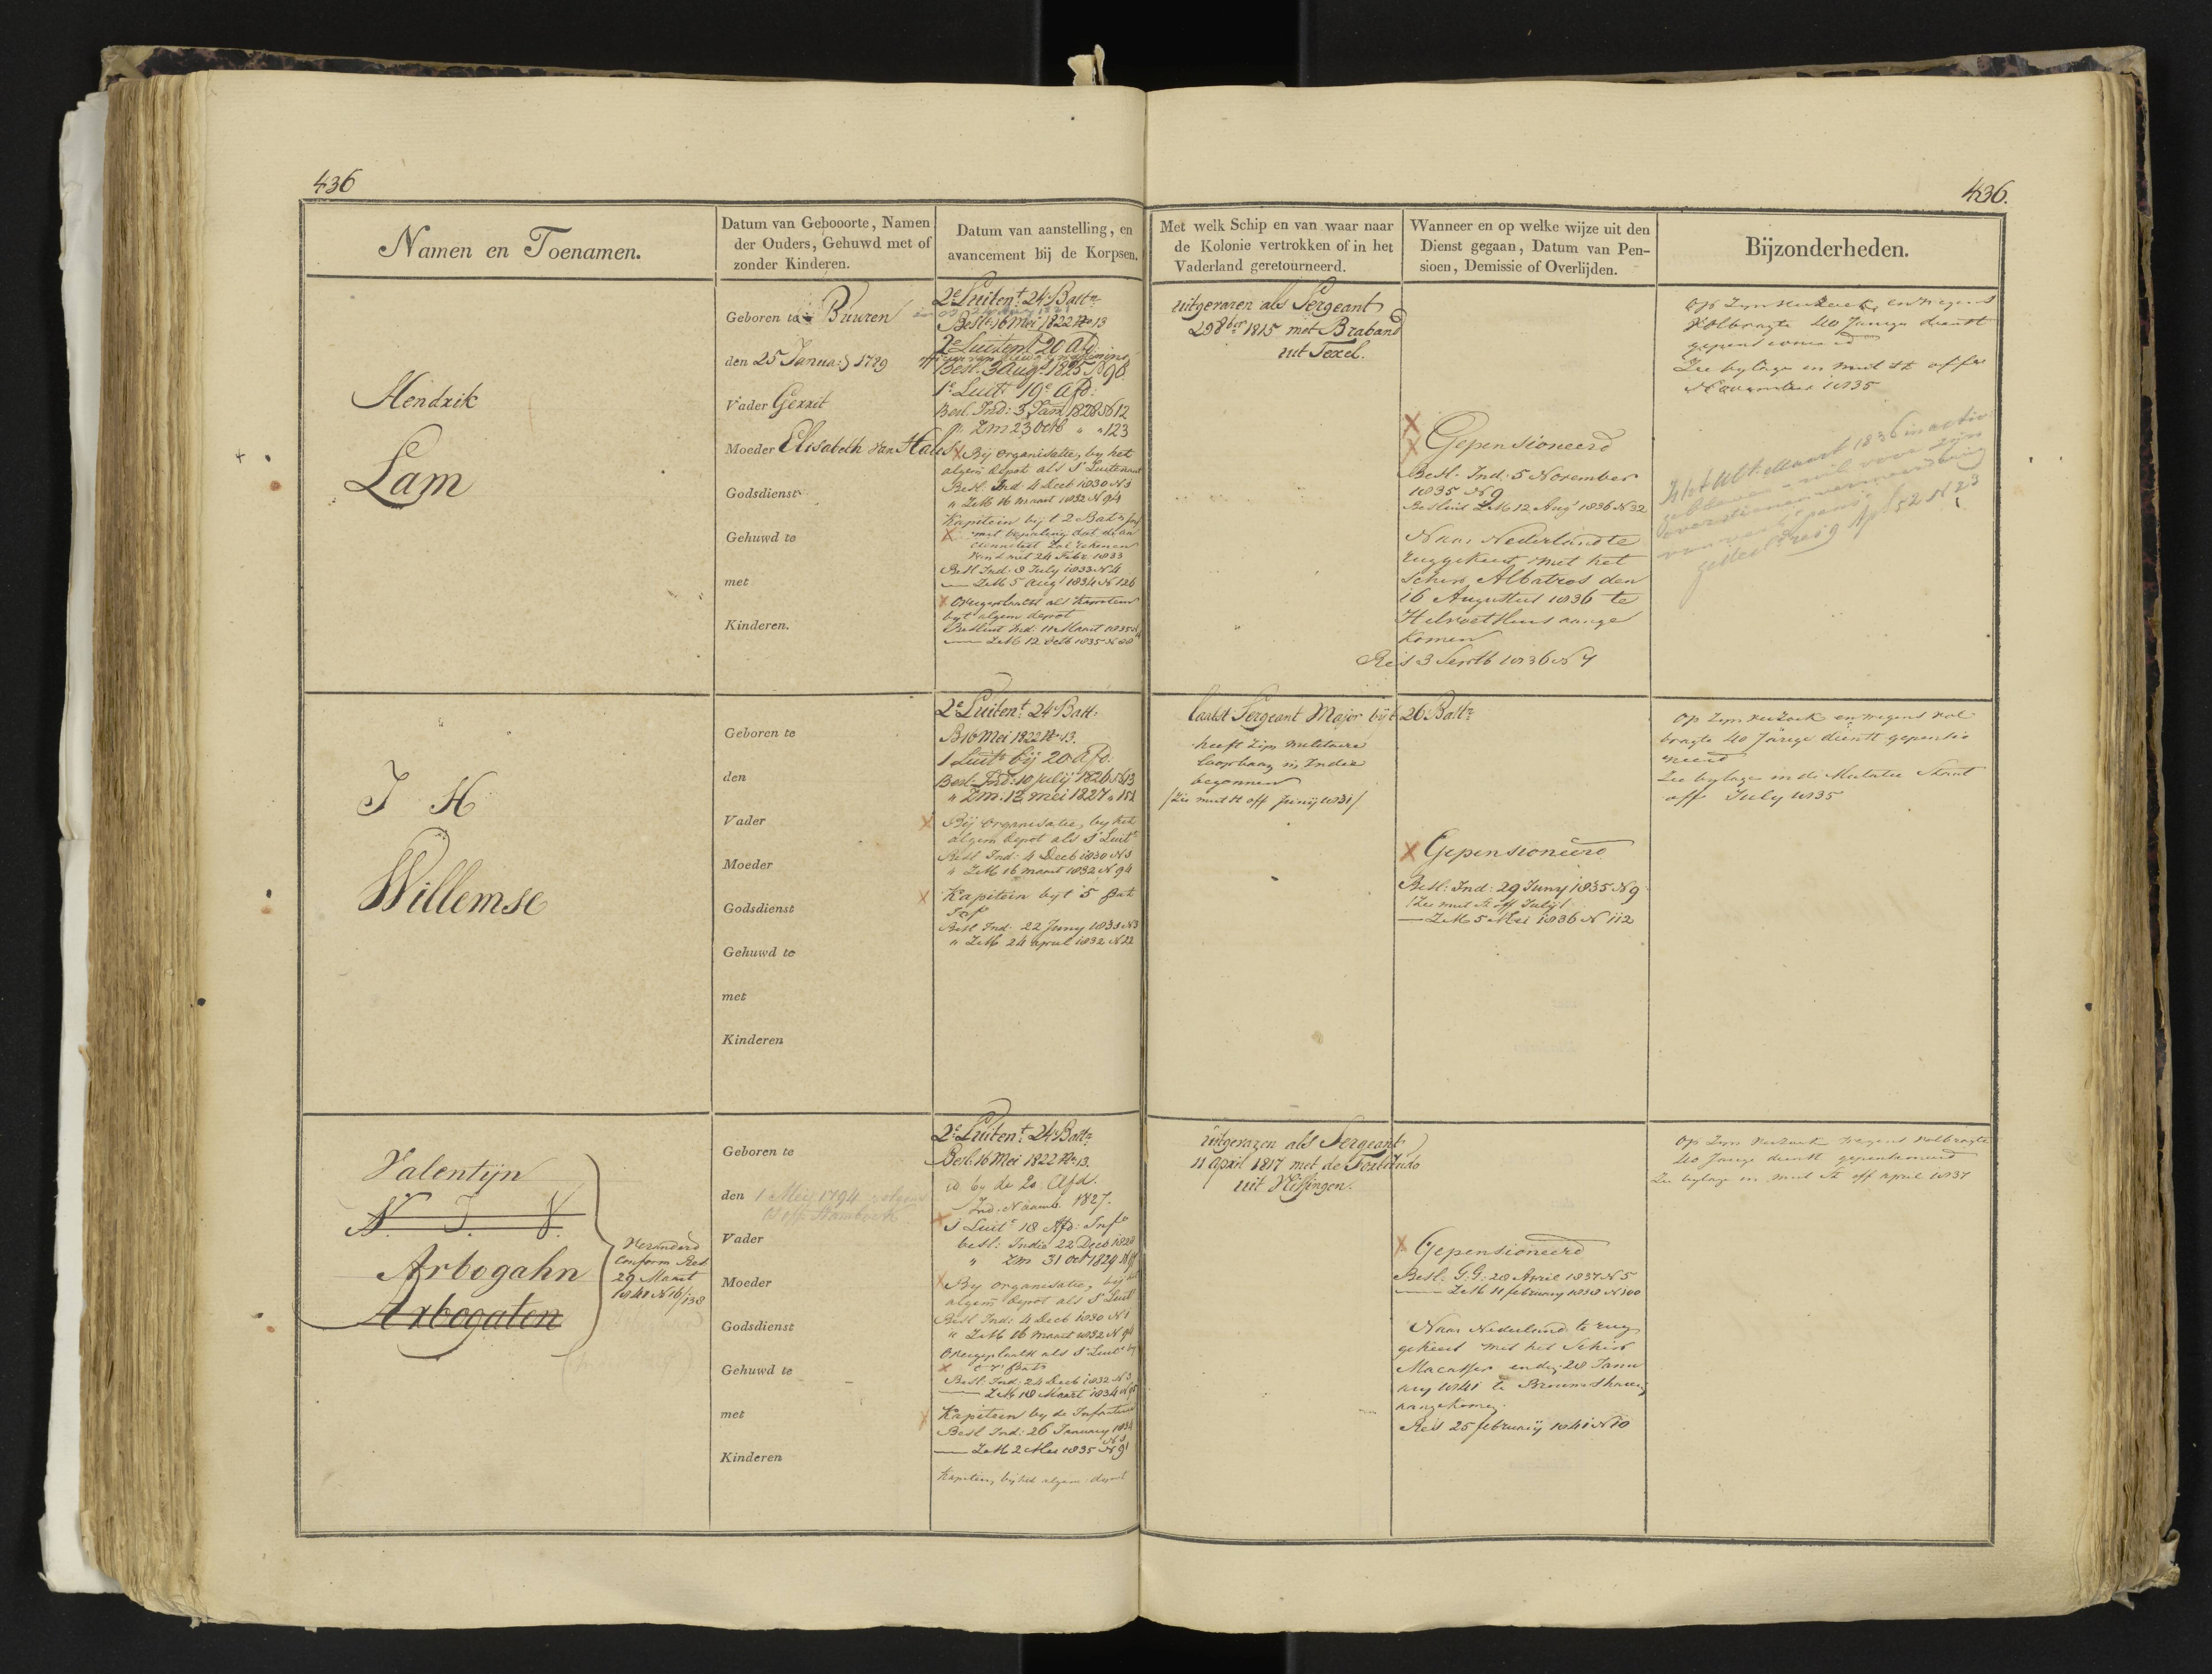 436
436.
Namen en Toenamen.
Datum van Gebooorte, Namen
der Ouders, Gehuwd met of
zonder Kinderen.
Datum van aanstelling, en
avancement bij de Korpsen.
Met welk Schip en van waar naar
de Kolonie vertrokken of in het
Vaderland geretourneerd.
Wanneer en op welke wijze uit den
Dienst gegaan, Datum van Pen-
sioen, Demissie of Overlijden.
Bijzonderheden.
Hendrik
Lam
Geboren te Buuren
den 25 Januarij 1789
Vader Gerrit
Moeder Elisabeth van Hals
Godsdienst
Gehuwd te
met
Kinderen.
2e Luitent. 24e Battn
Beslt 16 Mei 1822 No 13
2e Luitent. 20 Afd.
Besl. 3 Augs 1825 No 96
1e Luitt 19e Afd:
Besl. Ind: 3 Jan 1828 N 12
" Zm 23 Octb " " 123
Bij organisatie, by het
algem depot als 1e Luitenant
Besl Ind 4 Decb 1830 N 1
" ZM 16 maart 1832 N 94
Kapitein bij t 2 Batn Inf
met bepaling dat de an
cienneteit zal rekenen
24 Febr 1833
Besl Ind: 8 July 1833 N 4
ZM 5 Augt 1834 N 126
Overgeplaatst als Kapitein
byt algem depot
Besluit Ind. 11 Maart 1835
ZM 12 Octb 1835 N 88
uitgevaren als Sergeant
29 8ber 1815 met Braband
uit Texel.
Gepensioneerd
Besl: Ind: 5 November
1835 N 9
Besluit ZM 12 Aug 1836 N 32
Naar Nederland te
ruggekeerd, met het
schip Albatros den
16 Augustus 1836 te
Helvoetsluis aange
komen
Res 3 Septb 1836 N 7
Op zyn verzoek, en wegens
volbragte 40 Jarige dienst
gepensioneerd
Zie bylage en mut St offs
November 1835
J H
Willemse
Geboren te
den
Vader
Moeder
Godsdienst
Gehuwd te
met
Kinderen
2e Luitent. 24e Batt.
B 16 Mei 1822 No 13.
1 Luitt bij 20 Afd.
Besl. Ind: 10 julij 1826 N 13
" Zm: 12 mei 1827 " 151
Bij organisatie, by het
algem depot als 1e Luitt
Besl Ind: 4 Decb 1830 N 1
" ZM 16 maart 1832 N 94
Kapitein byt 5 Bat
Inf
Besl Ind: 22 Juny 1831 N 3
" ZM 24 april 1832 N 22
laatst Sergeant Major bijt 26 Battn
heeft zijn militaire
loopbaan in Indie
begonnen
(Zie mut St off Junij 1831)
Gepensioneerd
Besl: Ind: 29 Juny 1835 N 9
(Zie mut St off July)
ZM 5 Mei 1836 N 112
Op zyn verzoek en wegens vol
bragte 40 Jarige dienst gepensio
neerd
Zie bylage in de Mutatie Staat
offs July 1835
Valentijn
N. J. V.
Arbogahn
Arbogaten
Veranderd
Conform Res
29 Maart
1841 N 16/138
Geboren te
den 1 Mei 1794 volgens
Stamboek
Vader
Moeder
Godsdienst
Gehuwd te
met
Kinderen
2e Luitent. 24e Battn
Besl. 16 Mei 1822 No 13.
id by de 20 Afd.
Ind. Naamb. 1827.
1 Luitt 18 Afd: Infe
besl: Indie 22 Decb 1828
" Zm 31 Oct 1829
By organisatie, bij het
algem depot als 1e Luit
Besl Ind: 4 Decb 1830 N 1
" ZM 16 maart 1832 N 94
Overgeplaatst als 1e Luitt by
t 7 Batn
Besl: Ind: 24 Decb 1832 N 3
ZM 18 Maart 1834 N 95
Kapitein by de Infanterie
Besl Ind: 26 January 1834
N 1
ZM 2 Mei 1835 N 91
Kapitein, by het algem: depot
uitgevaren als Sergeant
11 april 1817 met de Fortitudo
uit Vlissingen.
Gepensioneerd
Besl. G:G: 28 April 1837 N 5
ZM 11 february 1838 N 100
Naar Nederland te rug
gekeerd met het Schip
Macasser en den 28 Janu
ary 1841 te Brouwershaven
aangekomen.
Res 25 februarij 1841 N 10
Op zyn verzoek wegens volbragte
40 Jarige dienst gepensioneerd
Zie bylage in mut St off april 1837